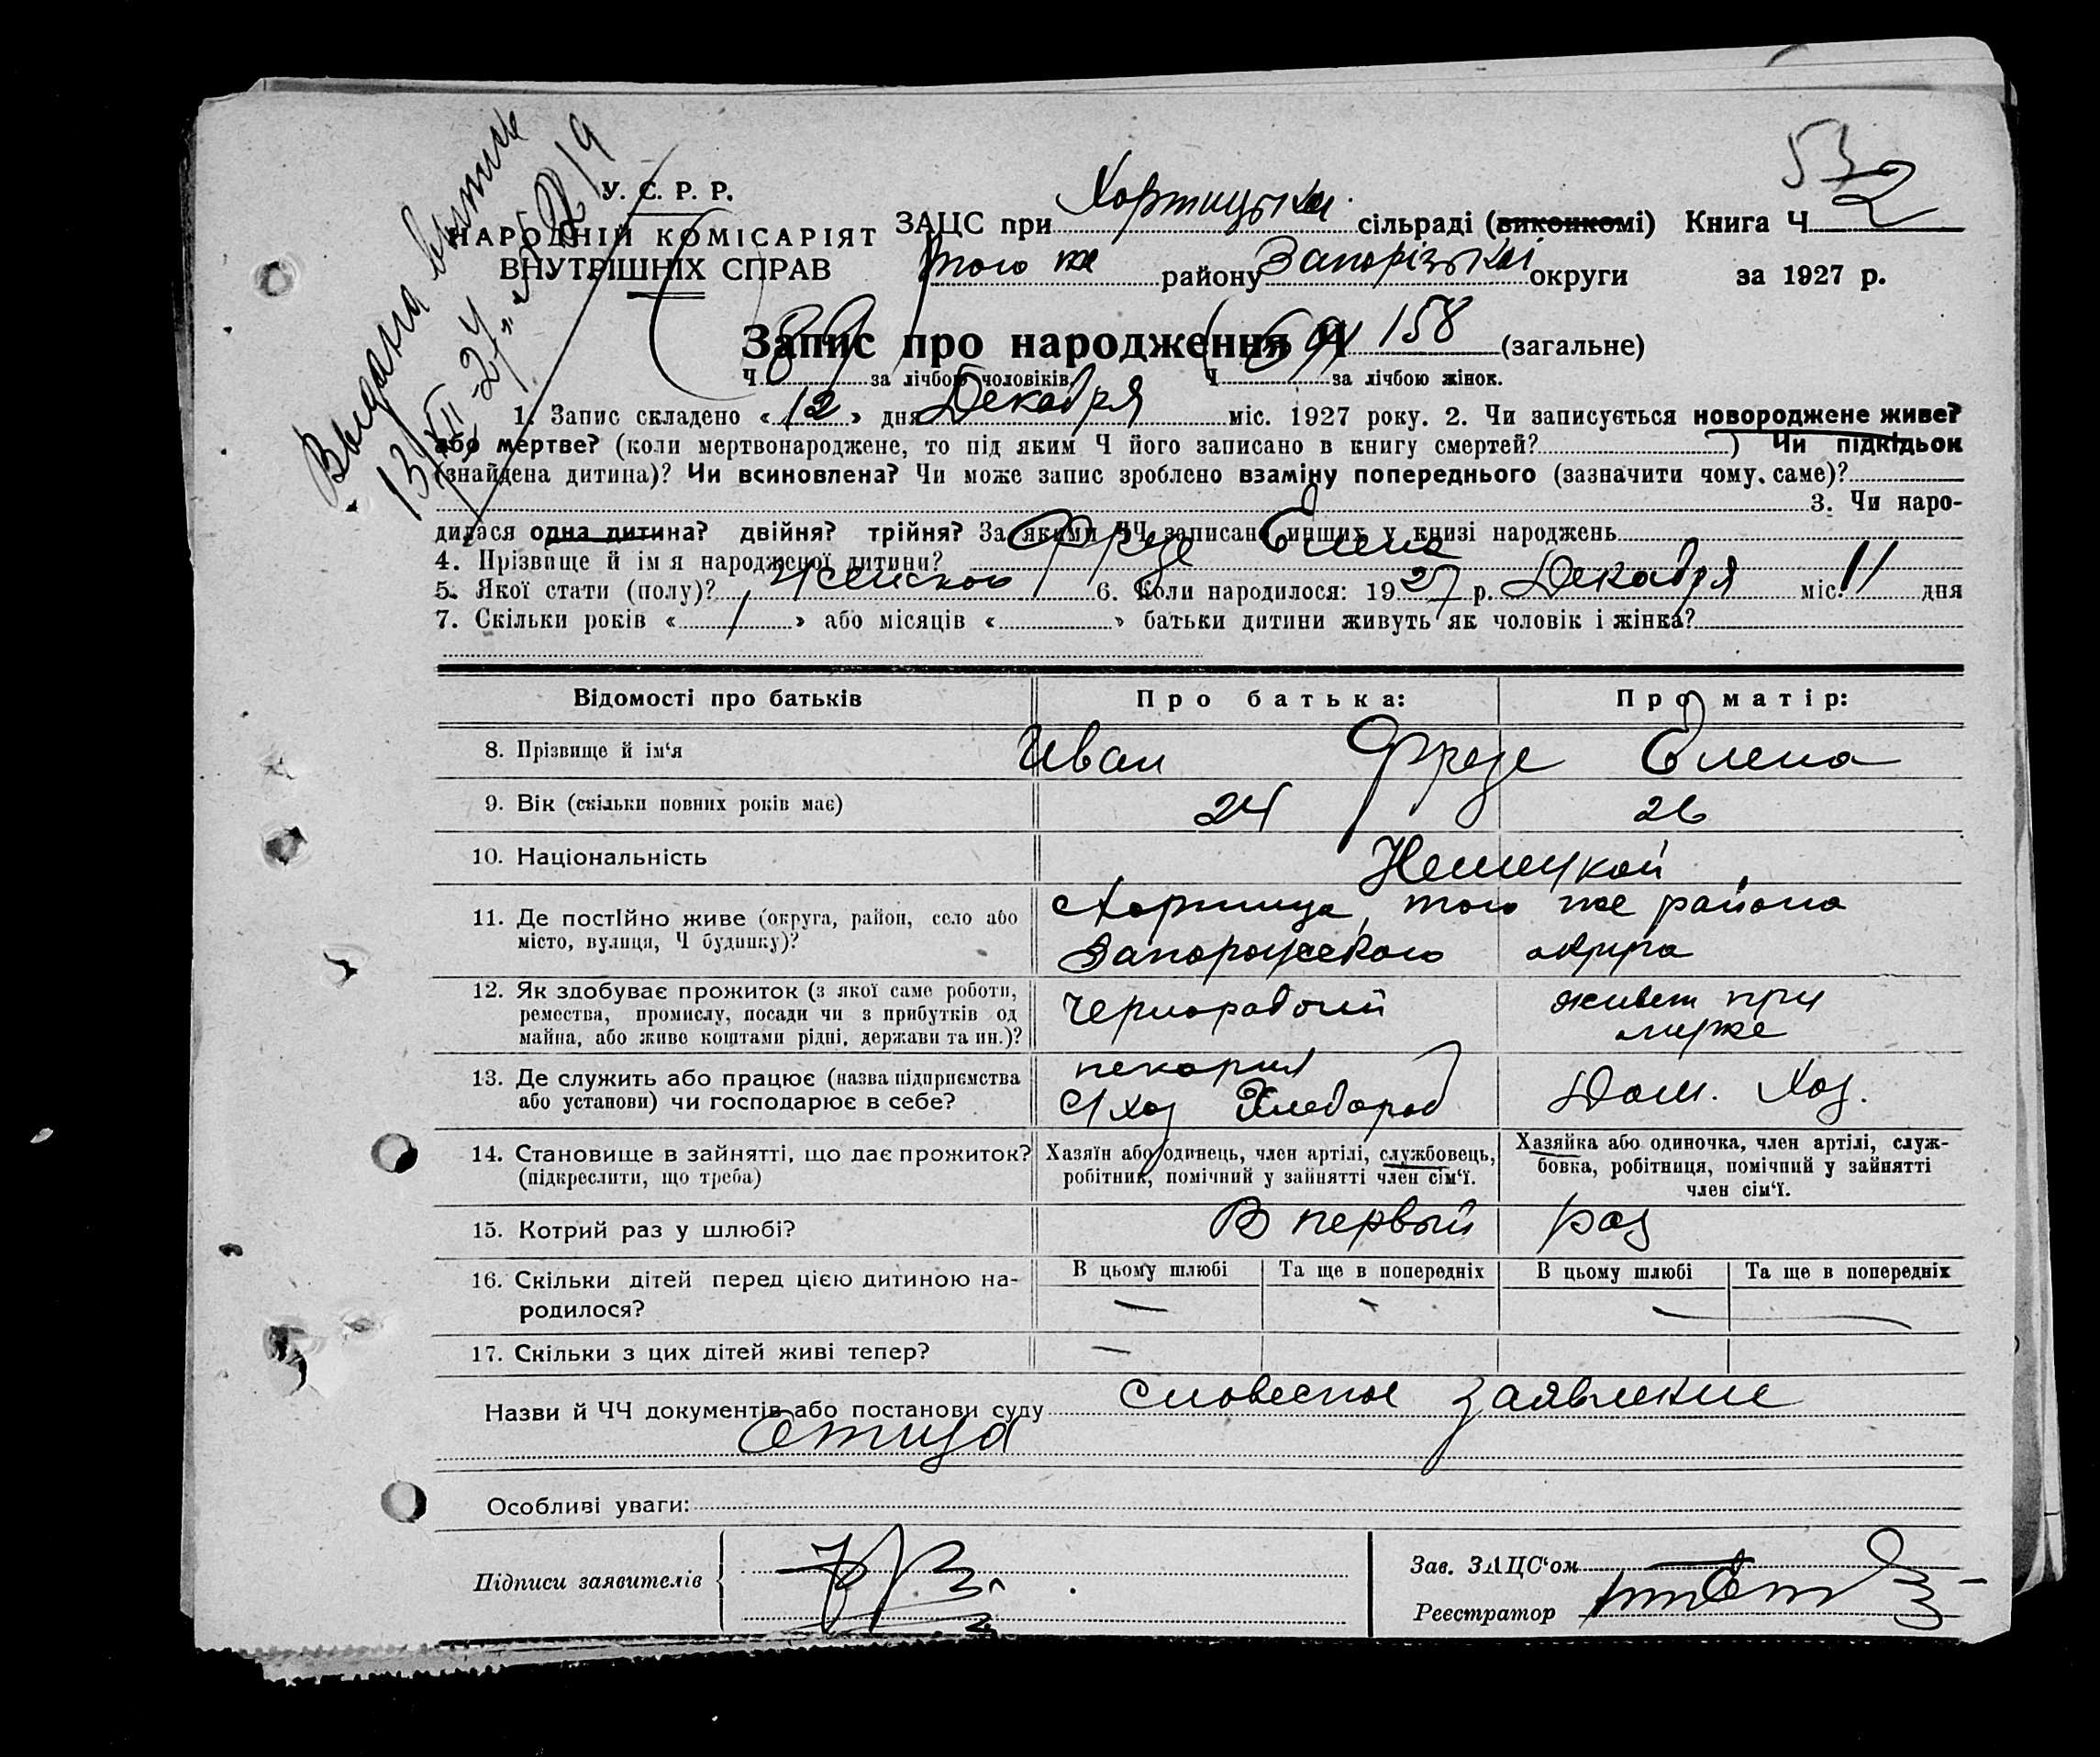 53
Выдана выпись
13/XII-27
У. С. Р. Р.
НАРОДНІЙ КОМІСАРІЯТ
ВНУТРІШНІХ СПРАВ
ЗАЦС при Хортицькій сільраді (виконкомі) Книга Ч 2
того же району Запорізькій округи за 1927 р.
Запис про народження Ч 158 (загальне)
Ч 89 за лічбою чоловіків. Ч 69 за лічбою жінок.
1. Запис складено «12» дня Декабря міс. 1927 року. 2. Чи записується новороджене живе?
або мертве? (коли мертвонароджене, то під яким Ч його записано в книгу смертей? ) Чи підкідьок
(знайдена дитина)? Чи всиновлена? Чи може запис зроблено взаміну попереднього (зазначити чому, саме)?
3. Чи наро-
дилася одна дитина? двійня? трійня? За якими ЧЧ записано инших у книзі народжень
4. Прізвище й ім'я народженої дитини? Фрезе Елена
5. Якої стати (полу)? Женского 6. Коли народилося: 1927 р. Декабря міс. 11 дня
7. Скільки років «1» або місяців « » батьки дитини живуть як чоловік і жінка?
Відомості про батьків Про батька: Про матір:
8. Прізвище й ім'я Иван Фрезе Елена
9. Вік (скільки повних років має) 24 26
10. Національність Немецкой
11. Де постійно живе (округа, район, село або Хортица, того же района
місто, вулиця, Ч будинку)? Запорожского округа
12. Як здобуває прожиток (з якої саме роботи, Чернорабочий живет при
ремества, промислу, посади чи з прибутків од муже
майна, або живе коштами рідні, держави та ин.)?
13. Де служить або працює (назва підприємства пекария
або установи) чи господарює в себе? С/хоз Хлебороб Дом. Хоз.
14. Становище в зайнятті, що дає прожиток? Хазяїн або одинець, член артілі, службовець, Хазяйка або одиночка, член артілі, служ-
(підкреслити, що треба) робітник, помічний у зайнятті член сім'ї. бовка, робітниця, помічний у зайнятті
член сім'ї.
15. Котрий раз у шлюбі? В первый раз
16. Скільки дітей перед цією дитиною на- В цьому шлюбі Та ще в попередніх В цьому шлюбі Та ще в попередніх
родилося? — — —
17. Скільки з цих дітей живі тепер? —
Назви й ЧЧ документів або постанови суду словесное заявление
отца
Особливі уваги:
Підписи заявителів
Зав. ЗАЦС'ом
Реєстратор